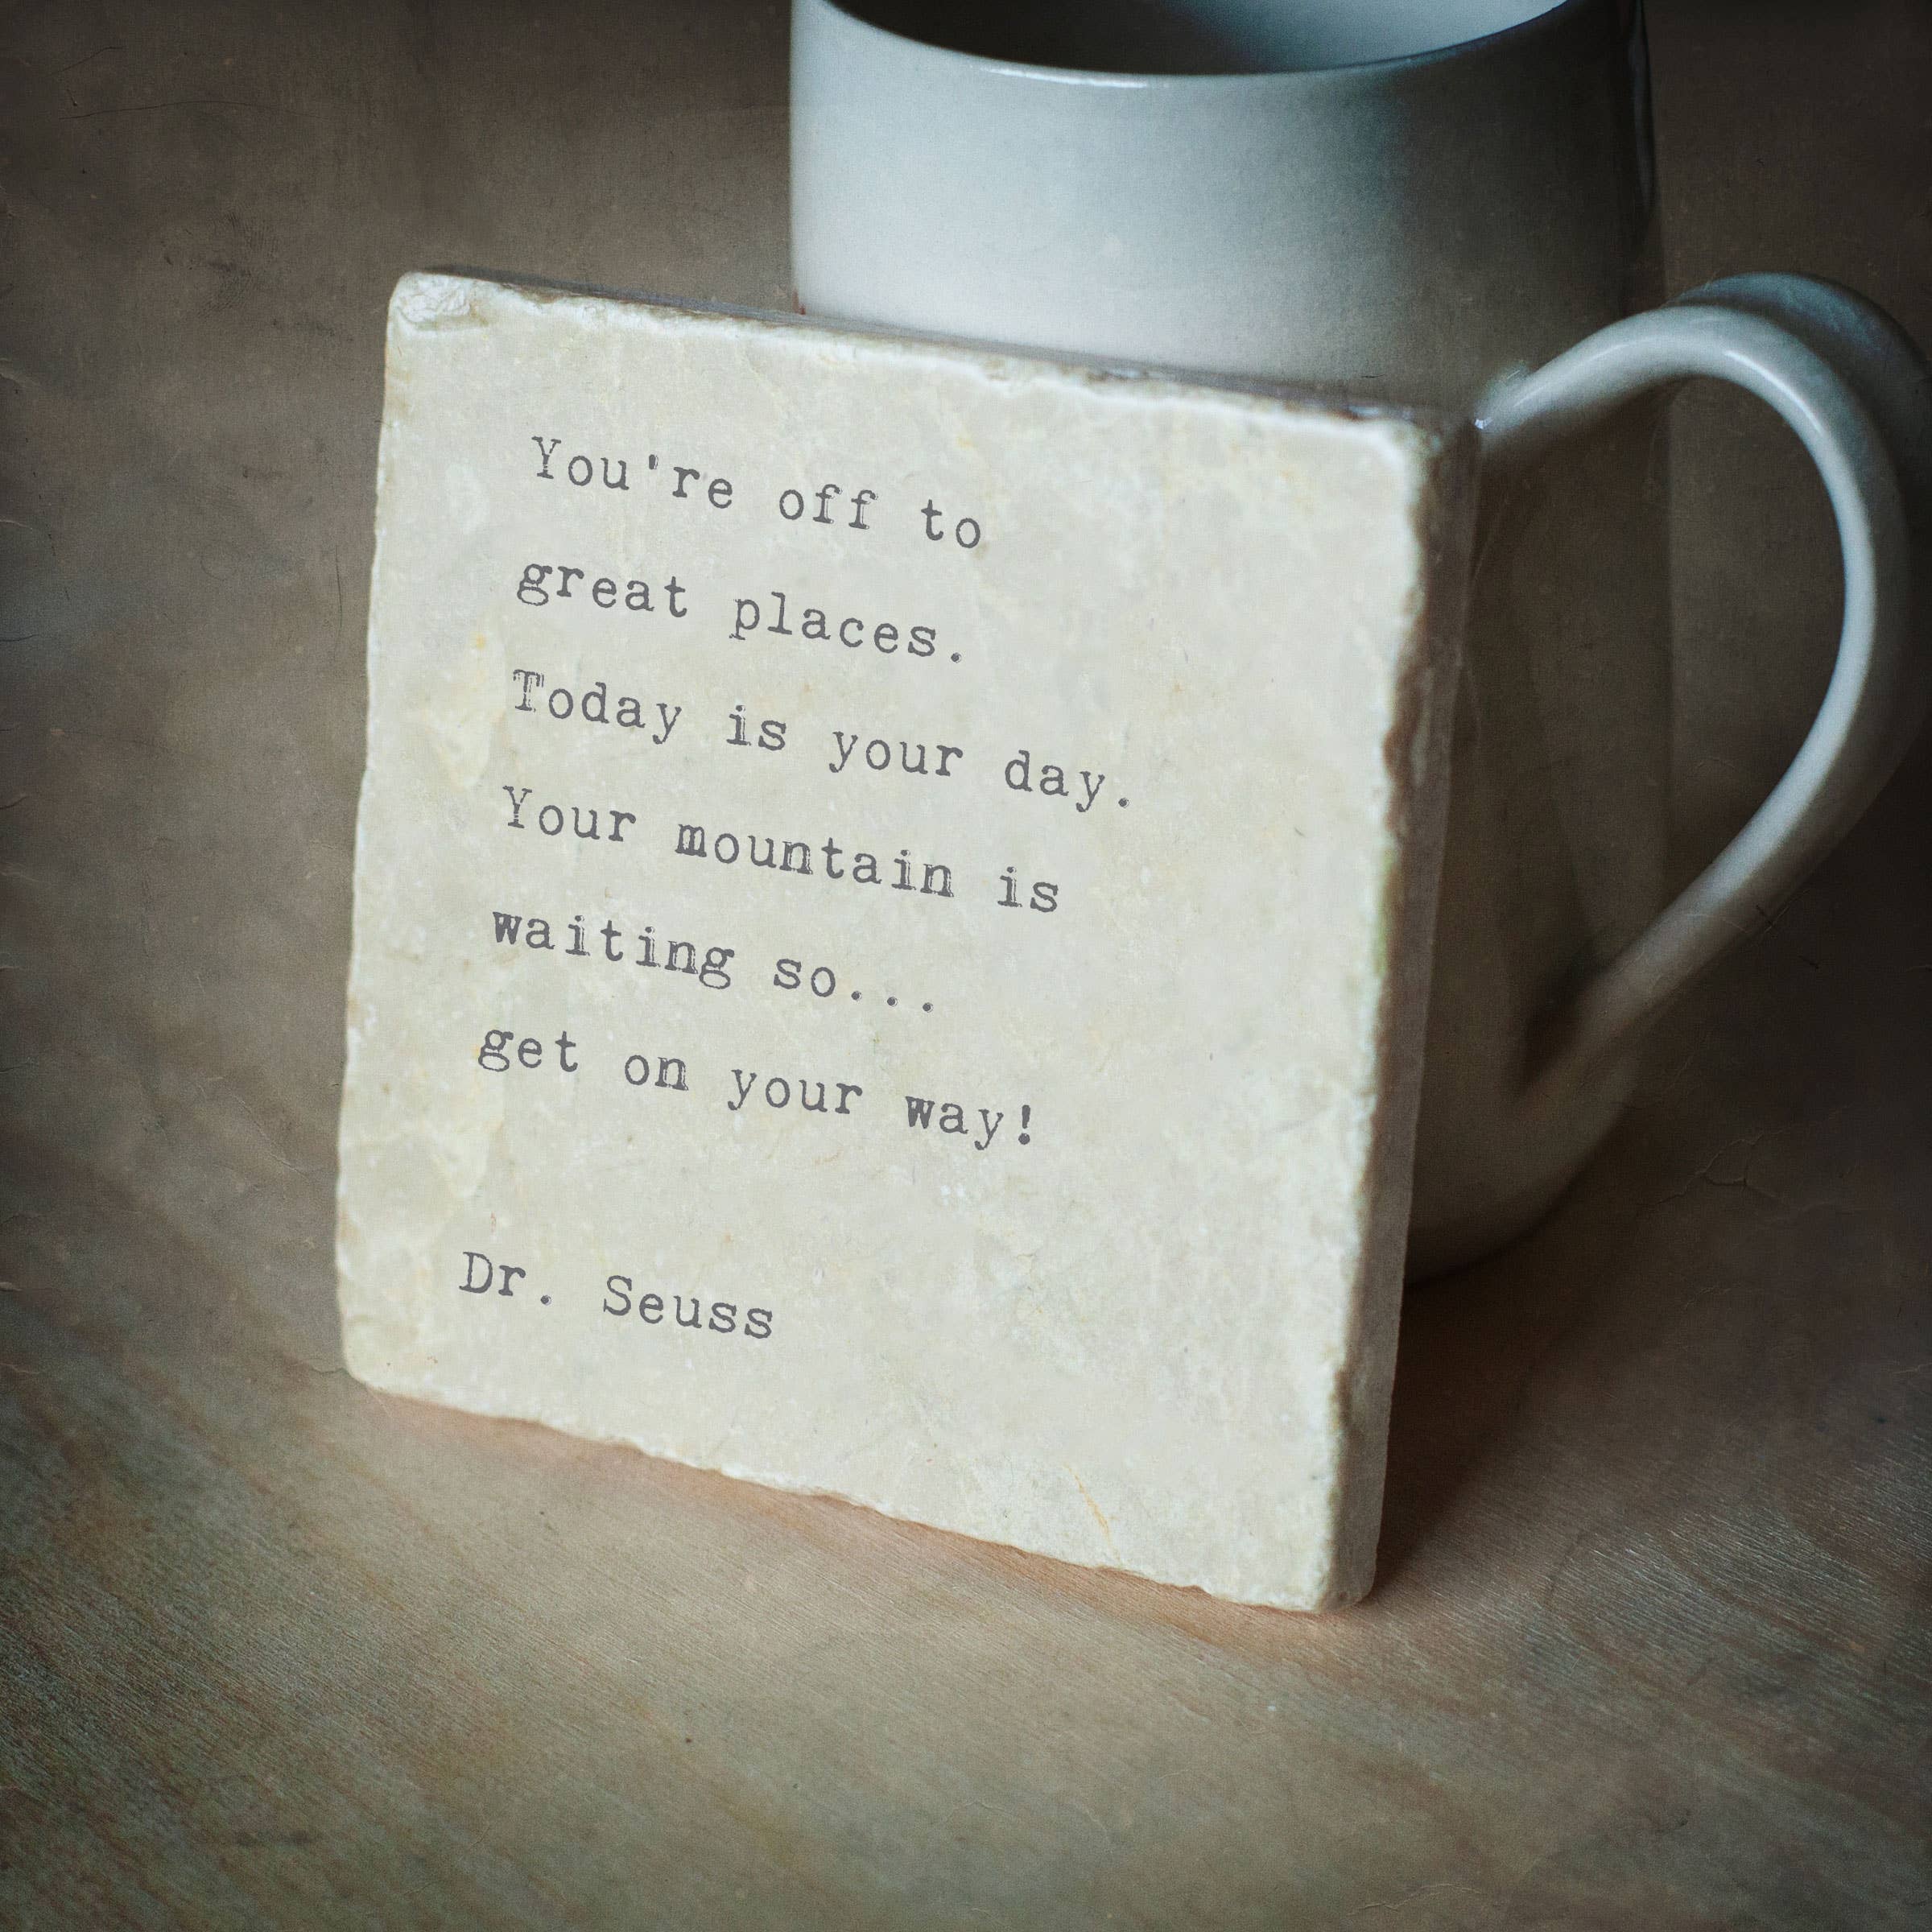 You're off to
great places.
Today is your day.
Your mountain is
waiting so...
get on your way!
Dr. Seuss